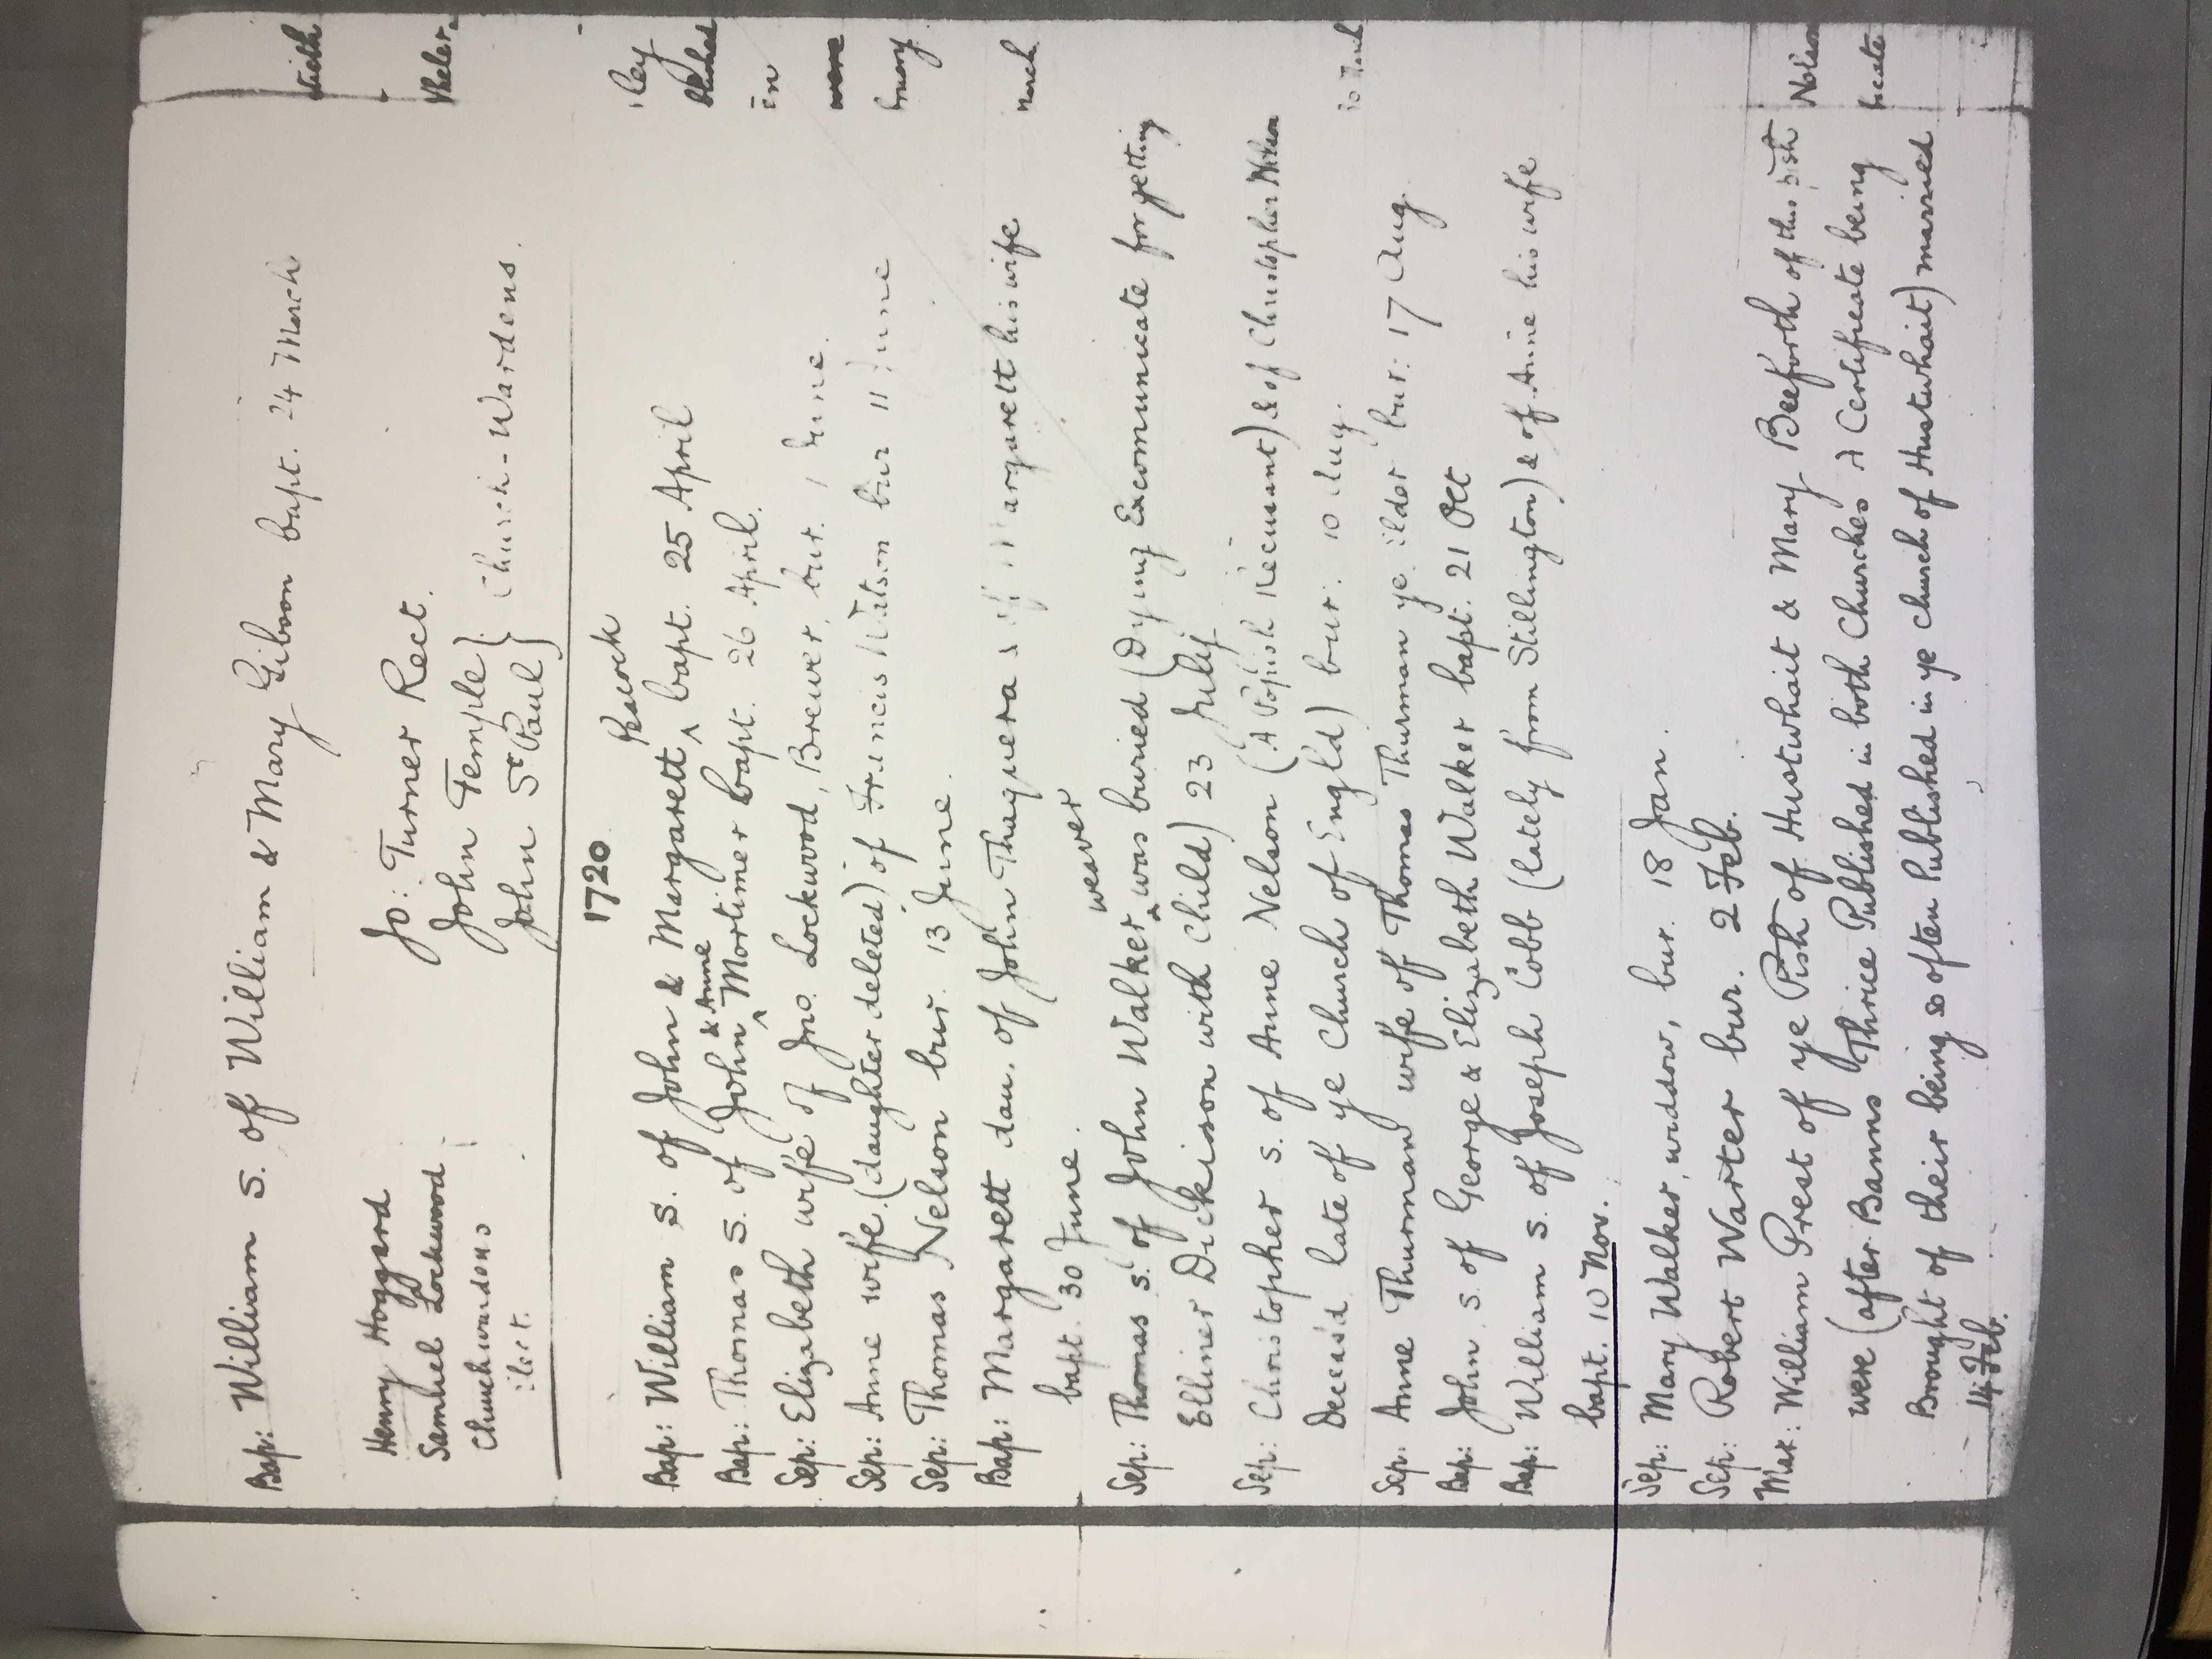 Bap: William s. of William & Mary Gibson bapt. 24 March
Henry Hoggard
Jo: Turner Rect.
Samuel Lockwood
John Temple }
Churchwardens
John St Paul } Church-Wardens.
elect.
1720
Peacock
Bap: William s. of John & Margarett ^ bapt. 25 April
& Anne
Bap: Thomas s. of John ^ Mortimer bapt. 26 April.
Sep: Elizabeth wife of Jno. Lockwood, Brewer, bur. June.
Sep: Anne wife (daughter deleted) of Francis Watson bur 11 June
Sep: Thomas Nelson bur. 13 June.
Bap: Margarett dau. of John Thaquera & Margarett his wife
bapt. 30 June.
weaver
Sep: Thomas s. of John Walker ^ was buried (Dying Excomunicate for getting
Elliner Dickison with Child) 23 July
Sep: Christopher s. of Anne Nelson (A Popish Recusant) & of Christopher Nelson
Deceas'd late of ye Church of Engl'd) bur: 10 Aug.
Sep: Anne Thurman wife of Thomas Thurman ye Elder bur: 17 Aug.
Bap: John s. of George & Elizabeth Walker bapt. 21 Oct
Bap: William s. of Joseph Cobb (lately from Stillington) & of Anne his wife
bapt. 10 Nov.
Sep: Mary Walker, widdow, bur. 18 Jan.
Sep: Robert Warter bur. 2 Feb.
Mar: William Prest of ye Pish of Hustwhait & Mary Beeforth of this pish
were (after Banns Thrice Published in both Churches A Certificate being
Brought of their being so often Published in ye church of Hustwhait) married
14 Feb.